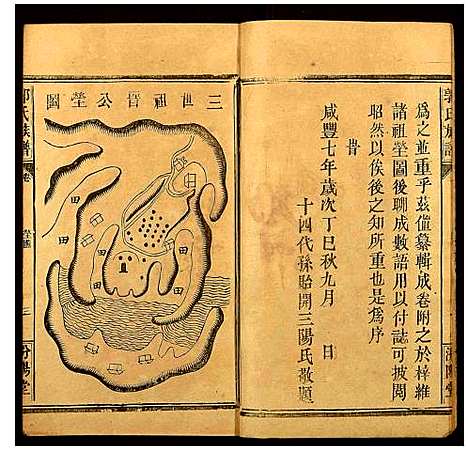 郭氏族譜
為之並重乎茲僅纂輯成卷附之於梓維
諸祖塋圖後聊成數語用以付誌可披閱
昭然以俟後之知所重也是為序
旹
咸豐七年歲次丁巳秋九月 日
十四代孫貽開三陽氏敬題
三世祖晉公塋圖
田
田
田
田
郭氏族譜
卷
三
汾陽堂